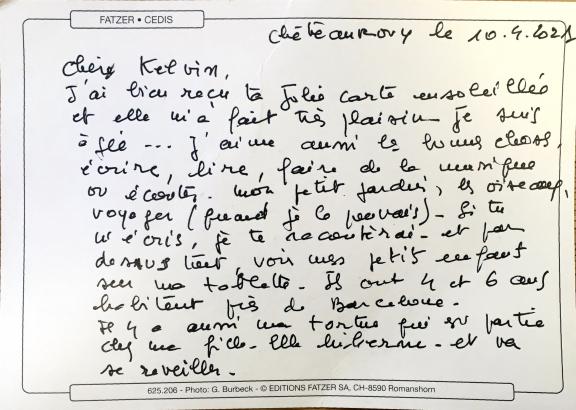 FATZER • CEDIS
Châteauroux le 10.4.2021
Cher Kelvin,
J'ai bien reçu ta jolie carte ensoleillée
et elle m'a fait très plaisir je suis
âgée --- J'aime aussi les bonnes choses,
écrire, lire, faire de la musique
ou écouter. mon petit jardin, les oiseaux,
voyager (quand je le pouvais) - Si tu
m'écris, je te raconterai - et par
dessus tout, voir mes petits enfants
sur ma tablette - Ils ont 4 et 6 ans
habitent près de Barcelone -
Il y a aussi ma tortue qui est partie
chez ma fille - Elle hiberne - et va
se reveiller -
625.206 - Photo: G. Burbeck - © EDITIONS FATZER SA, CH-8590 Romanshorn